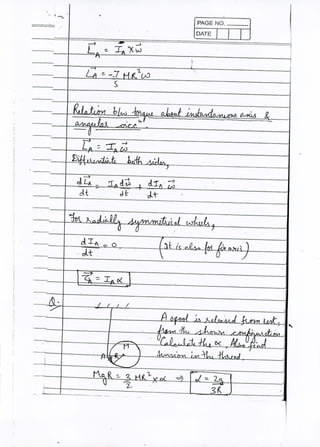 PAGE NO.
DATE
L_A = I_A × ω
L_A = -7 MR²ω
5
Relation b/w torque about instantaneous axis &
angular acc^n.
L_A = I_A ω
Differentiate both sides,
dL_A/dt = I_A dω/dt + dI_A/dt ω
For radially symmetrical wheels,
dI_A/dt = 0 (It is also for fix axis)
τ_A = I_A α
Q.
A spool is released from rest,
from the shown configuration
Calculate the α. Also find
tension in the thread.
M
A R
MgR = 3/2 MR² × α ⇒ α = 2g/3R